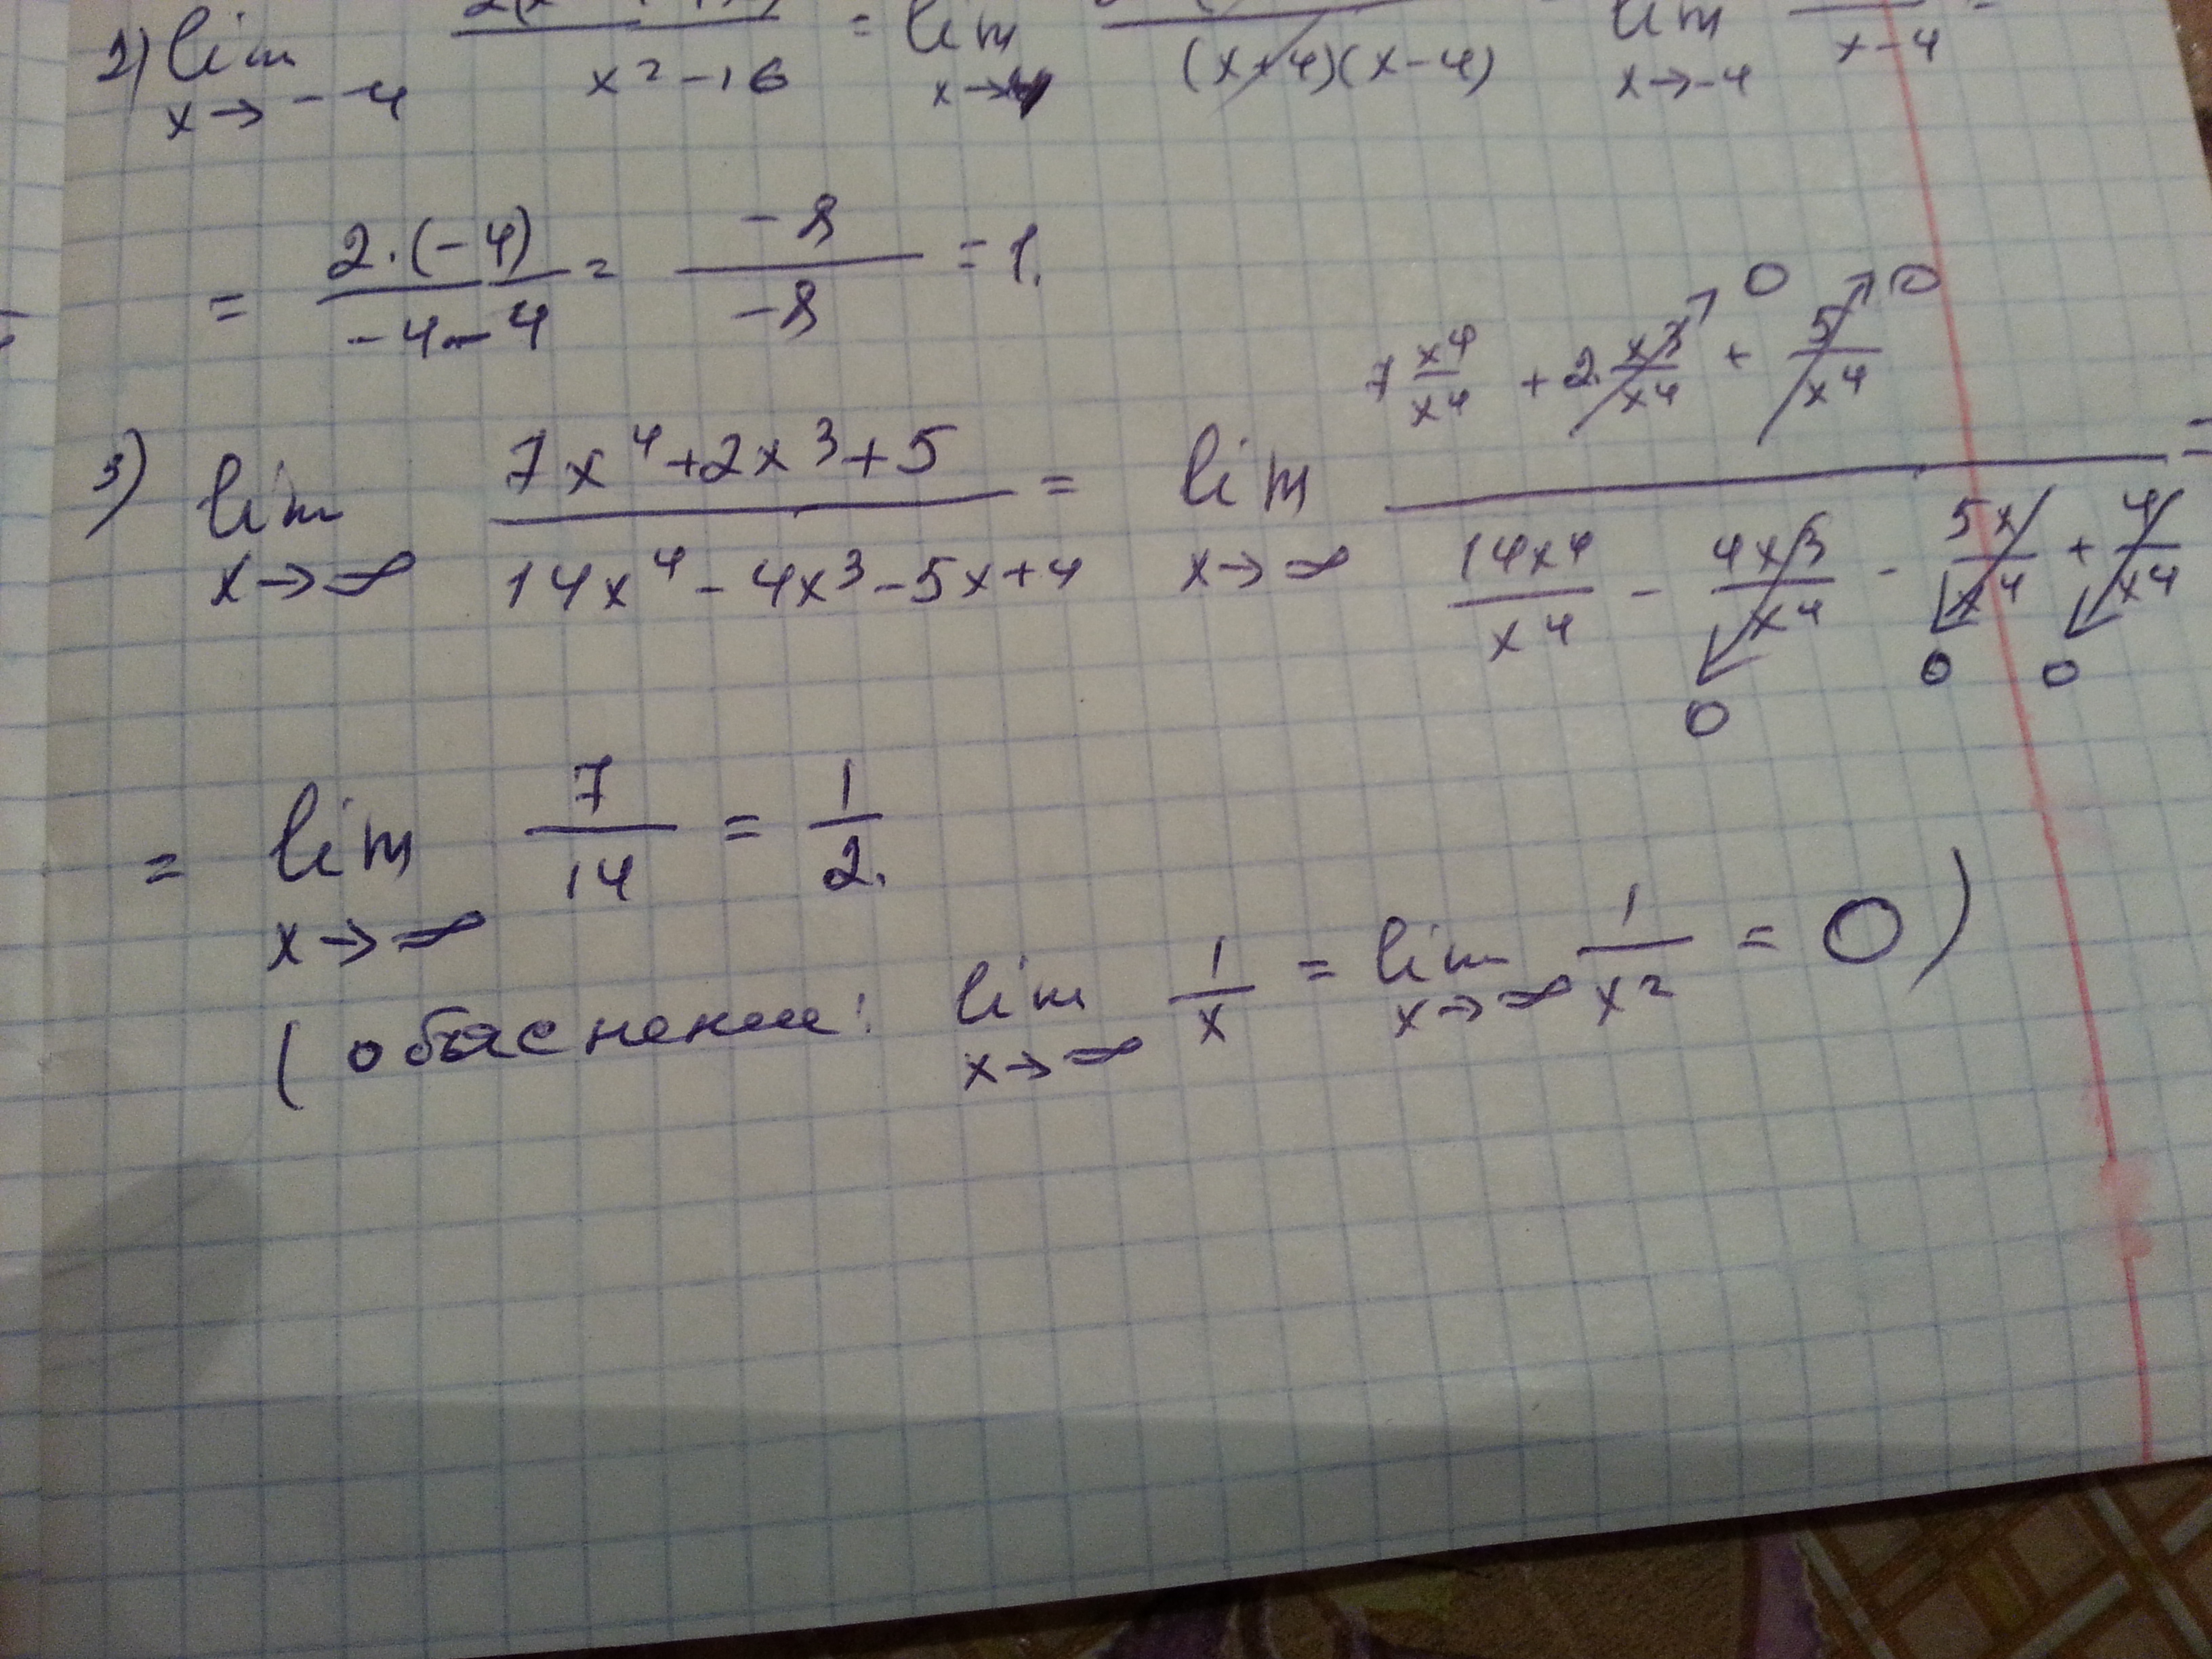 2) lim x→-4 x²-16 = lim x→4 (x+4)(x-4) lim x→-4 x-4
= 2·(-4)/-4-4 = -8/-8 = 1.
3) lim x→∞ 7x⁴+2x³+5/14x⁴-4x³-5x+4 = lim x→∞ 7 x⁴/x⁴ + 2·x³/x⁴ → 0 + 5/x⁴ → 0 / 14x⁴/x⁴ - 4x³/x⁴ → 0 - 5x/x⁴ → 0 + 4/x⁴ → 0 =
= lim x→∞ 7/14 = 1/2.
(обяснение: lim x→∞ 1/x = lim x→∞ 1/x² = 0)